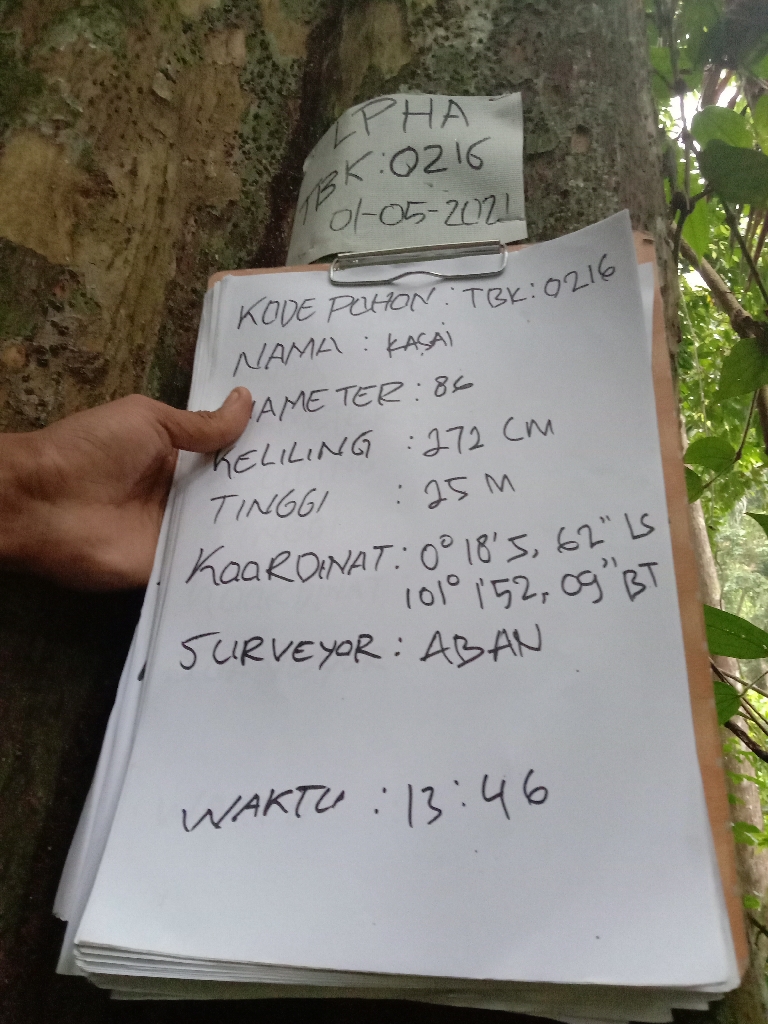 LPHA
TBK:0216
01-05-2021
KODE POHON : TBK:0216
NAMA : KASAI
IAMETER : 86
KELILING : 272 CM
TINGGI : 25 M
KOORDINAT : 0° 18' 5, 62" LS
101° 1' 52, 09" BT
SURVEYOR : ABAN
WAKTU : 13:46